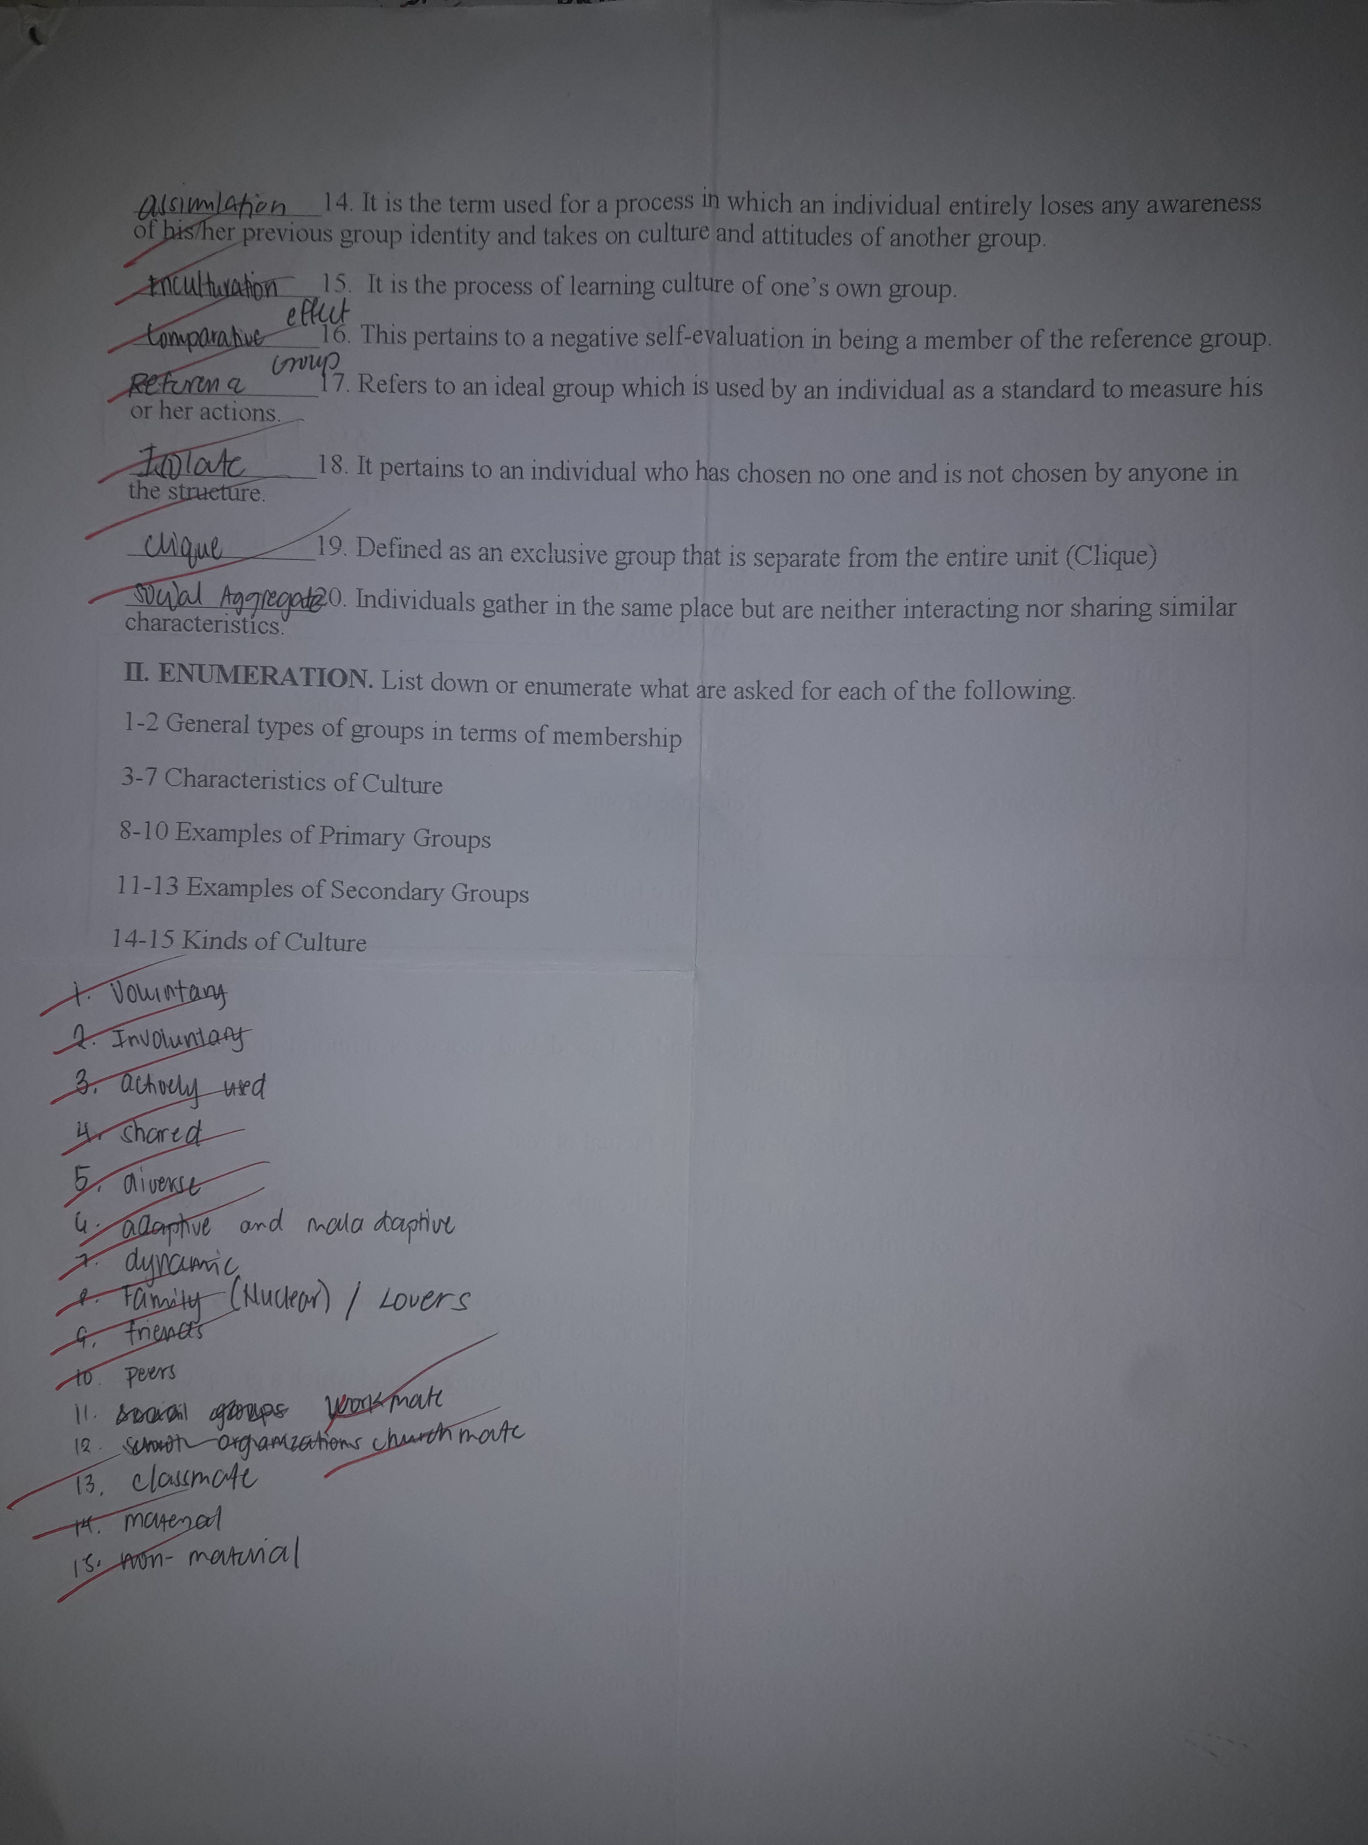 assimilation 14. It is the term used for a process in which an individual entirely loses any awareness
of his/her previous group identity and takes on culture and attitudes of another group.
Inculturation 15. It is the process of learning culture of one's own group.
effect
Comparative 16. This pertains to a negative self-evaluation in being a member of the reference group.
Group
Reference 17. Refers to an ideal group which is used by an individual as a standard to measure his
or her actions.
Isolate 18. It pertains to an individual who has chosen no one and is not chosen by anyone in
the structure.
Clique 19. Defined as an exclusive group that is separate from the entire unit (Clique)
Social Aggregate 20. Individuals gather in the same place but are neither interacting nor sharing similar
characteristics.
II. ENUMERATION. List down or enumerate what are asked for each of the following.
1-2 General types of groups in terms of membership
3-7 Characteristics of Culture
8-10 Examples of Primary Groups
11-13 Examples of Secondary Groups
14-15 Kinds of Culture
1. Voluntary
2. Involuntary
3. actively used
4. shared
5. diverse
6. adaptive and maladaptive
7. dynamic
8. Family (Nuclear) / Lovers
9. friends
10. peers
11. social groups workmate
12. school organizations churchmate
13. classmate
14. material
15. non-material